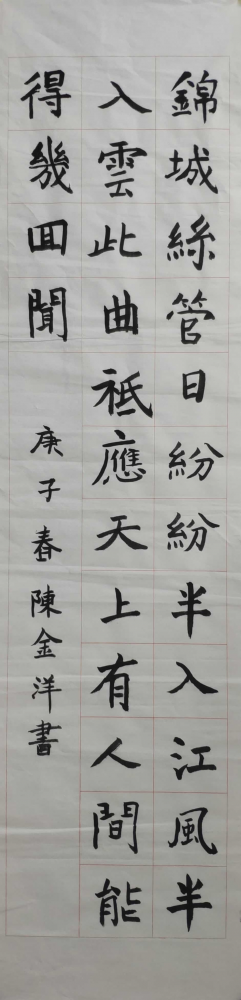 錦城絲管日紛紛半入江風半
入雲此曲祇應天上有人間能
得幾回聞
庚子春陳金洋書